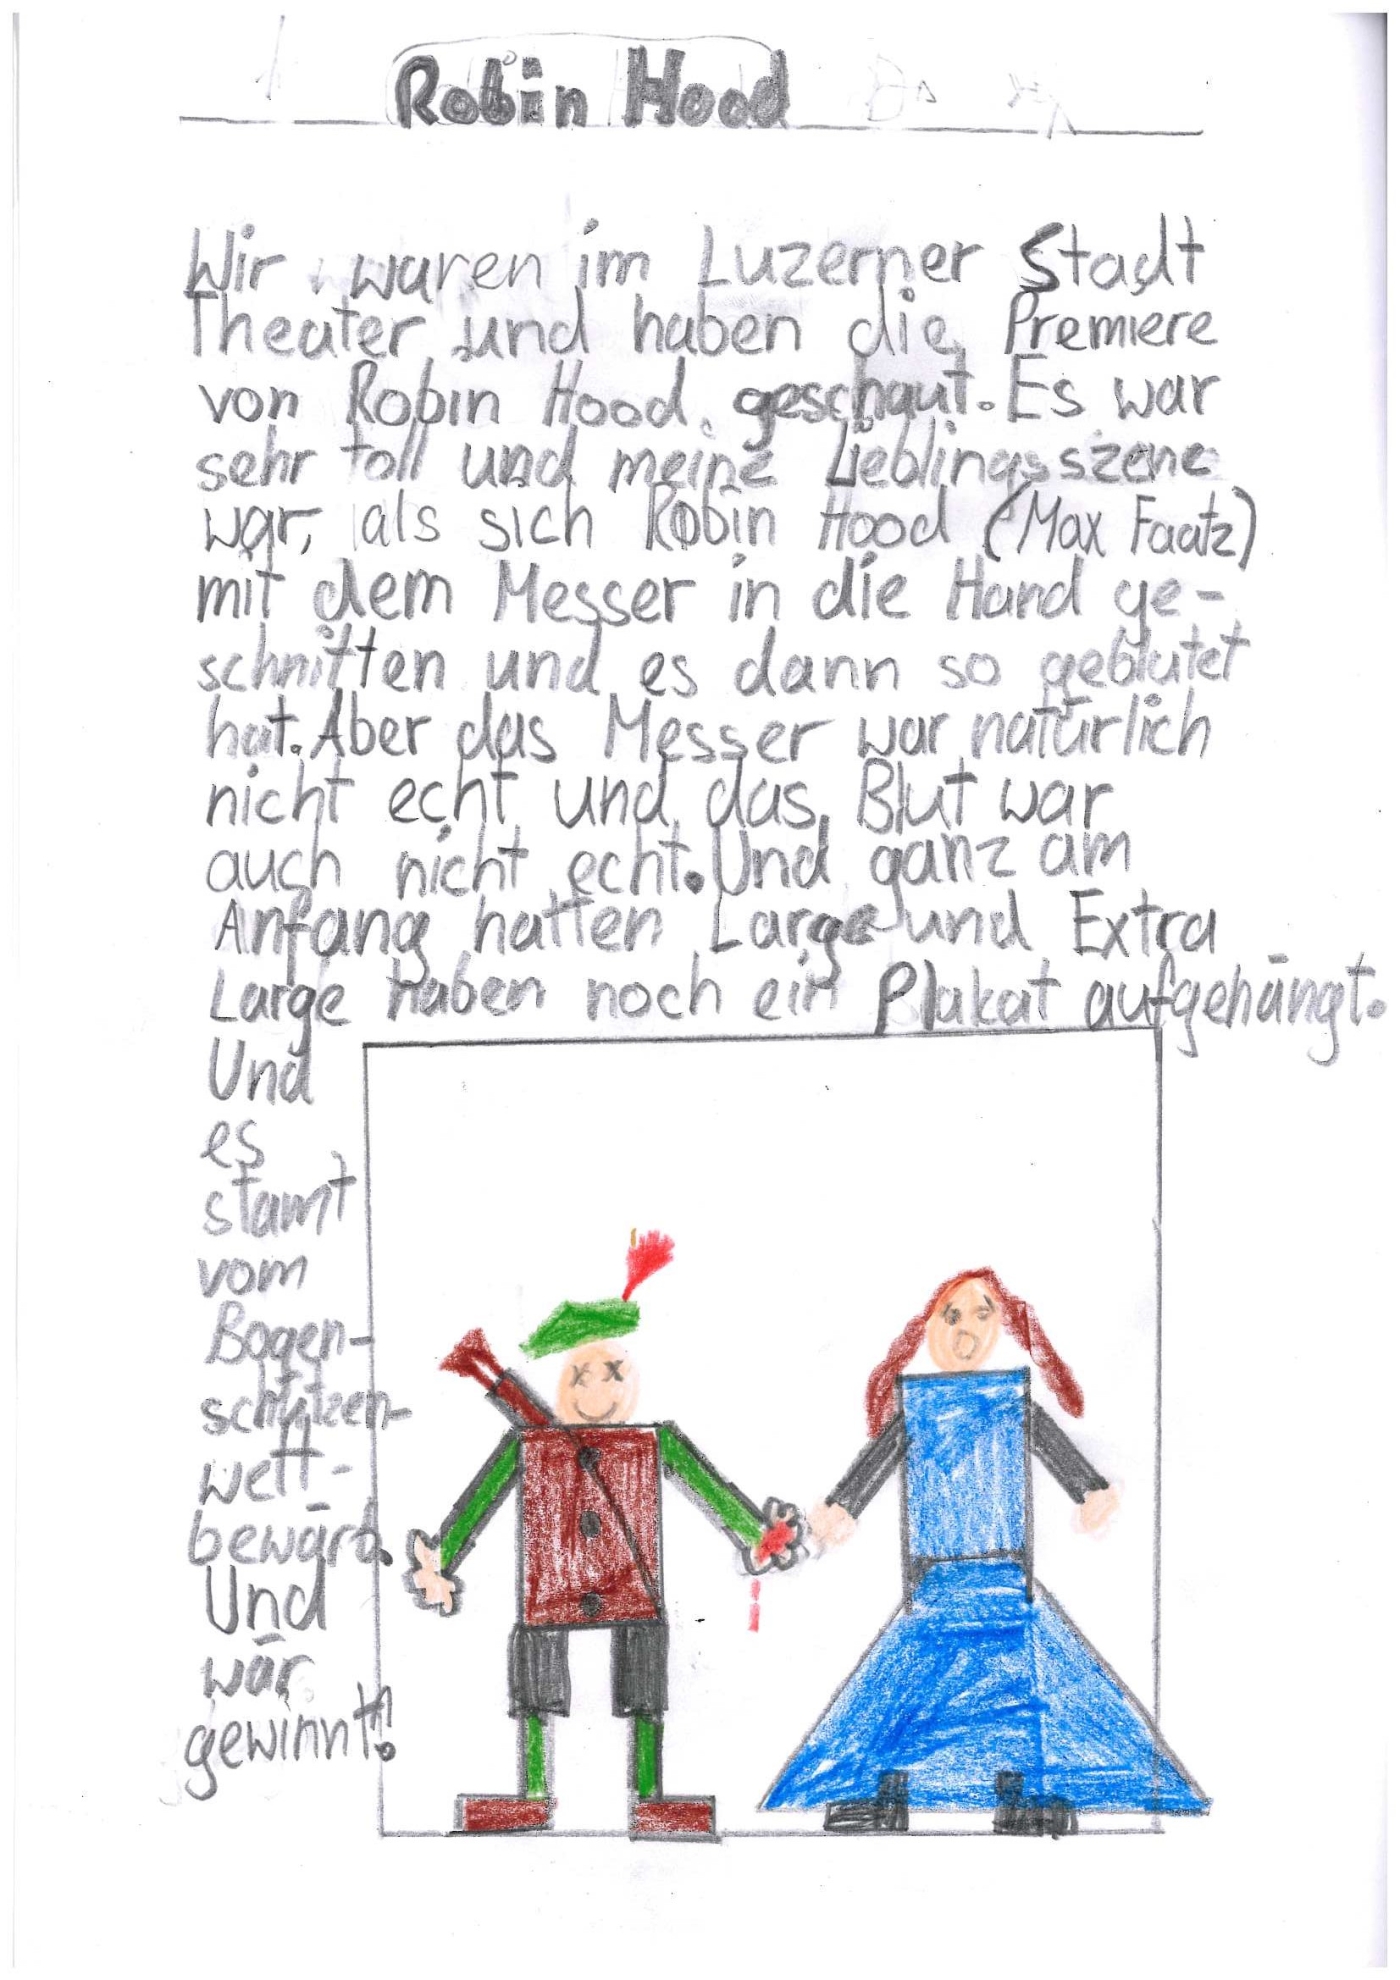 Robin Hood
Wir waren im Luzerner Stadt
Theater und haben die Premiere
von Robin Hood geschaut. Es war
sehr toll und meine Lieblingsszene
war, als sich Robin Hood (Max Faatz)
mit dem Messer in die Hand ge-
schnitten und es dann so geblutet
hat. Aber das Messer war natürlich
nicht echt und das Blut war
auch nicht echt. Und ganz am
Anfang hatten Large und Extra
Large haben noch ein Plakat aufgehängt.
Und
es
stamt
vom
Bogen-
schützen-
wett-
bewärb.
Und
wär
gewinnt!